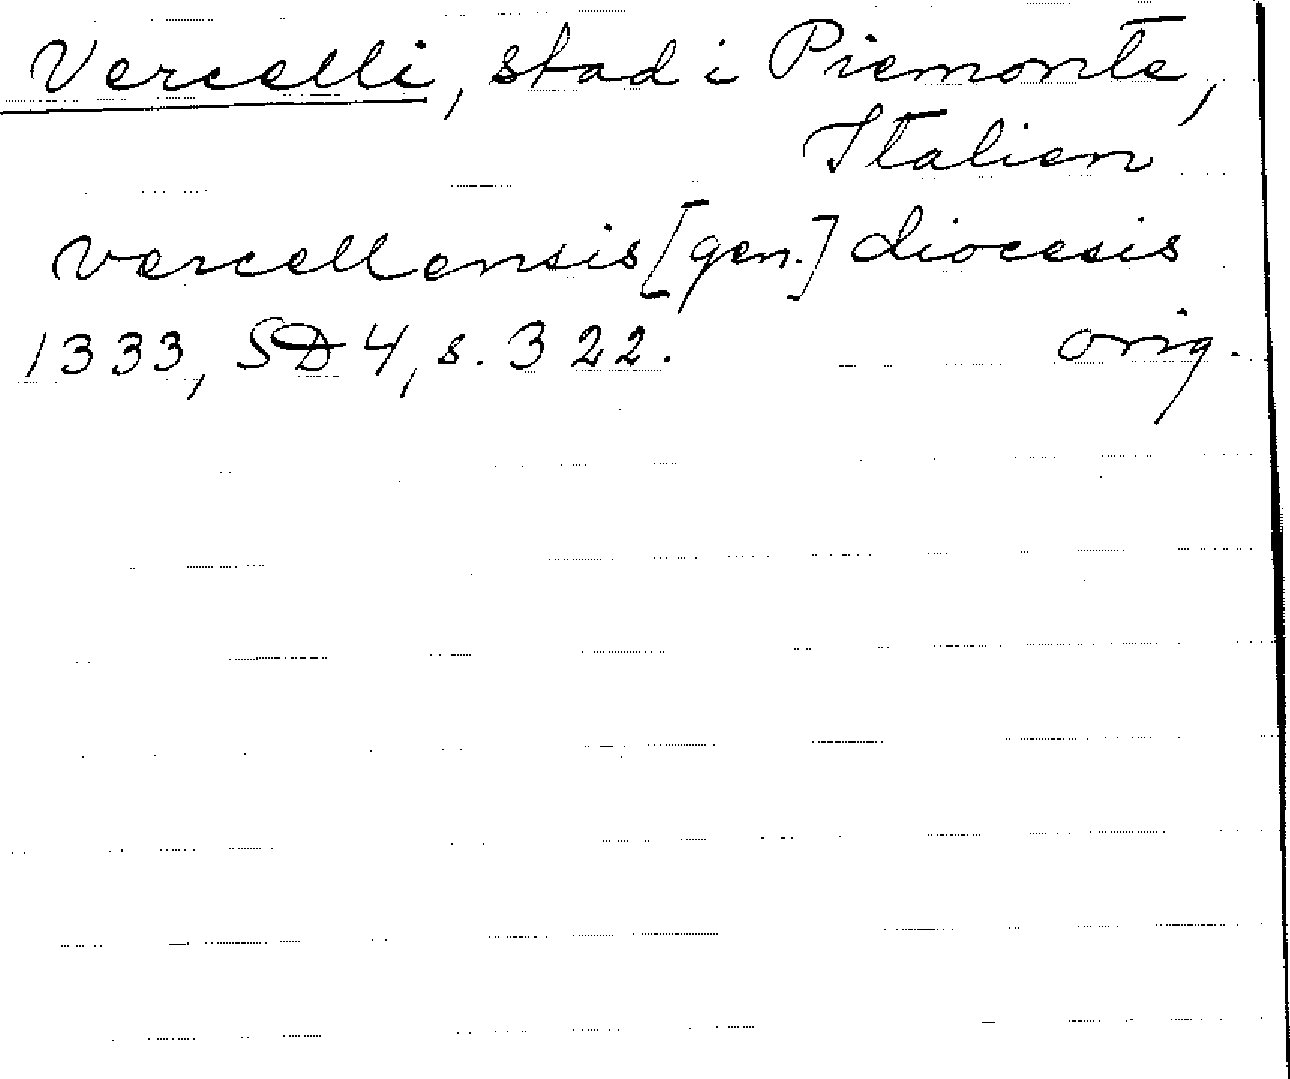 Vercelli, stad i Piemonte,
Italien
vercellensis [gen.] diocesis
1333, SD 4, s. 322. orig.